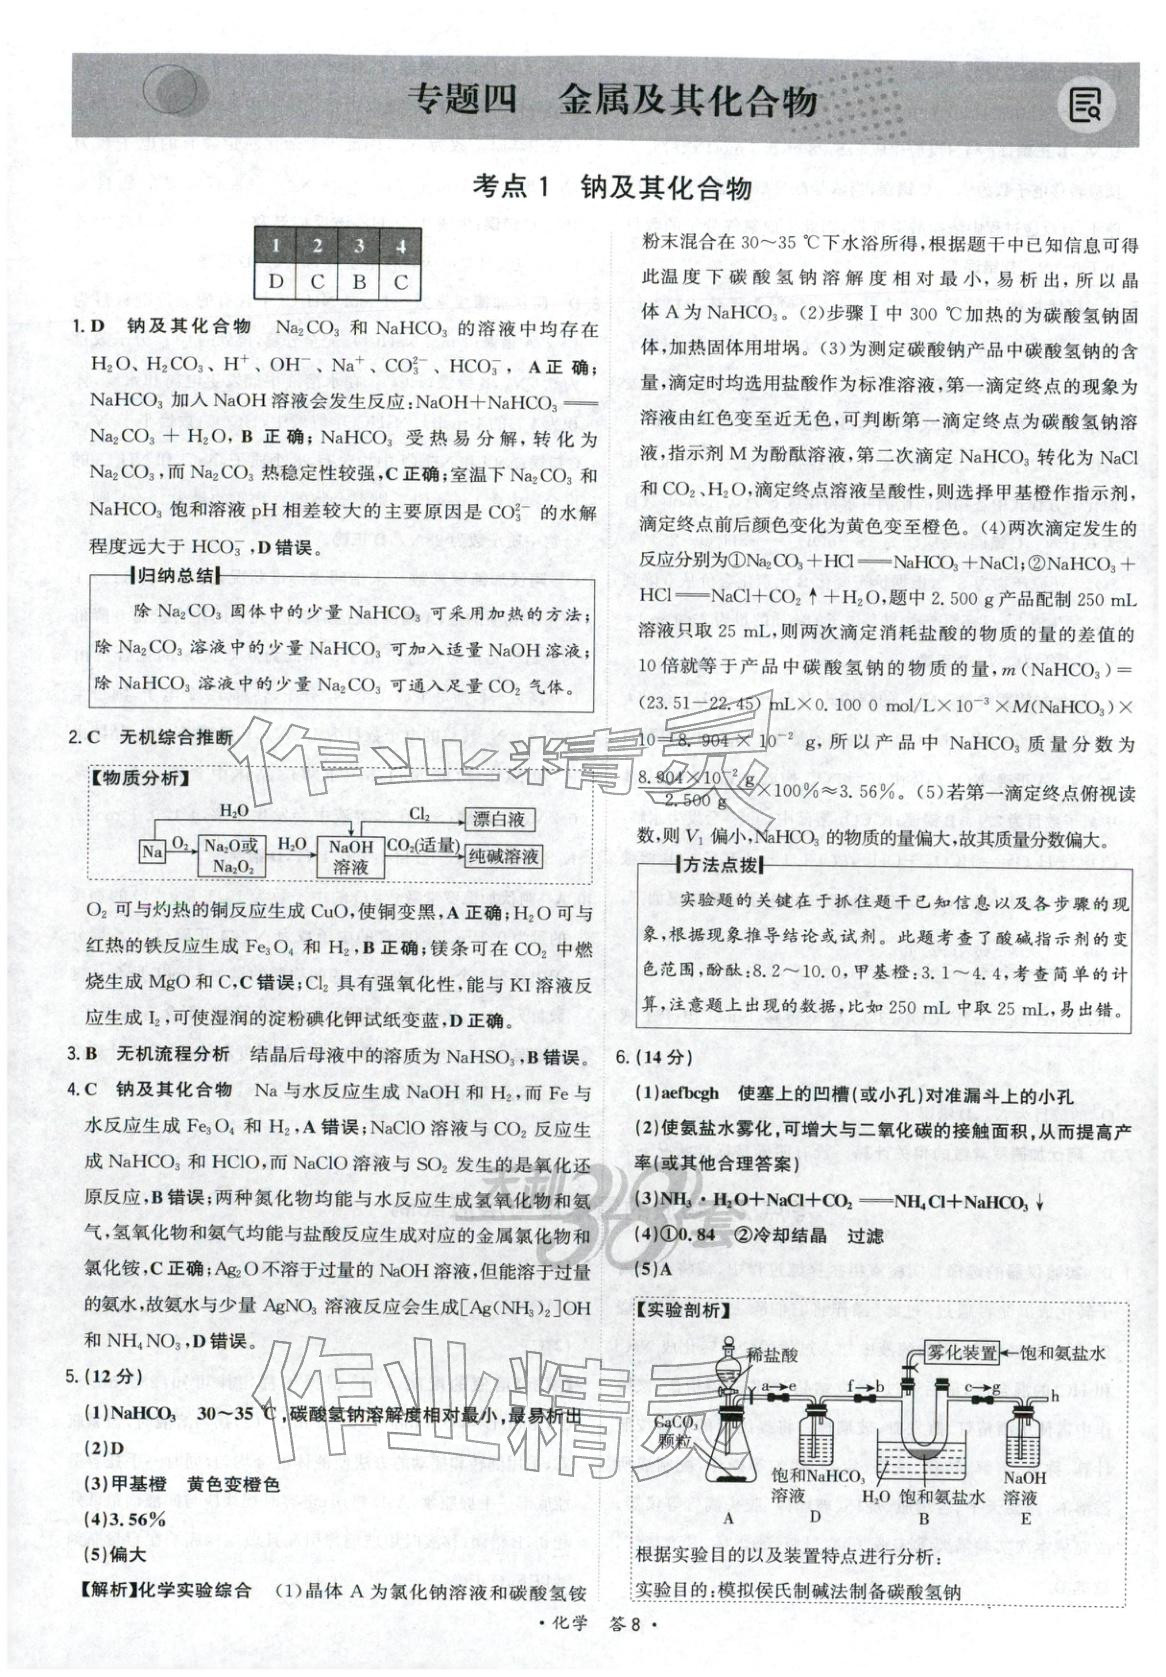 专题四 金属及其化合物
考点1 钠及其化合物
1 2 3 4
D C B C
1. D 钠及其化合物 Na₂CO₃ 和 NaHCO₃ 的溶液中均存在
H₂O、H₂CO₃、H⁺、OH⁻、Na⁺、CO₃²⁻、HCO₃⁻，A正确；
NaHCO₃ 加入 NaOH 溶液会发生反应:NaOH+NaHCO₃══
Na₂CO₃+H₂O,B 正确；NaHCO₃ 受热易分解,转化为
Na₂CO₃,而 Na₂CO₃ 热稳定性较强,C正确；室温下 Na₂CO₃ 和
NaHCO₃ 饱和溶液 pH 相差较大的主要原因是 CO₃²⁻ 的水解
程度远大于 HCO₃⁻,D错误。
归纳总结
除 Na₂CO₃ 固体中的少量 NaHCO₃ 可采用加热的方法；
除 Na₂CO₃ 溶液中的少量 NaHCO₃ 可加入适量 NaOH 溶液；
除 NaHCO₃ 溶液中的少量 Na₂CO₃ 可通入足量 CO₂ 气体。
2. C 无机综合推断
【物质分析】
H₂O Cl₂ 漂白液
Na O₂ Na₂O或 H₂O NaOH CO₂(适量) 纯碱溶液
Na₂O₂ 溶液
O₂ 可与灼热的铜反应生成 CuO,使铜变黑,A正确；H₂O 可与
红热的铁反应生成 Fe₃O₄ 和 H₂,B正确；镁条可在 CO₂ 中燃
烧生成 MgO 和 C,C错误；Cl₂ 具有强氧化性,能与 KI 溶液反
应生成 I₂,可使湿润的淀粉碘化钾试纸变蓝,D正确。
3. B 无机流程分析 结晶后母液中的溶质为 NaHSO₃,B错误。
4. C 钠及其化合物 Na 与水反应生成 NaOH 和 H₂,而 Fe 与
水反应生成 Fe₃O₄ 和 H₂,A错误；NaClO 溶液与 CO₂ 反应生
成 NaHCO₃ 和 HClO,而 NaClO 溶液与 SO₂ 发生的是氧化还
原反应,B错误；两种氮化物均能与水反应生成氢氧化物和氨
气,氢氧化物和氨气均能与盐酸反应生成对应的金属氯化物和
氯化铵,C正确；Ag₂O 不溶于过量的 NaOH 溶液,但能溶于过量
的氨水,故氨水与少量 AgNO₃ 溶液反应会生成[Ag(NH₃)₂]OH
和 NH₄NO₃,D错误。
5. (12分)
(1)NaHCO₃ 30～35 ℃,碳酸氢钠溶解度相对最小,最易析出
(2)D
(3)甲基橙 黄色变橙色
(4)3.56%
(5)偏大
【解析】化学实验综合 (1)晶体 A 为氯化钠溶液和碳酸氢铵
粉末混合在 30～35 ℃下水浴所得,根据题干中已知信息可得
此温度下碳酸氢钠溶解度相对最小,易析出,所以晶
体 A 为 NaHCO₃。(2)步骤Ⅰ中 300 ℃加热的为碳酸氢钠固
体,加热固体用坩埚。(3)为测定碳酸钠产品中碳酸氢钠的含
量,滴定时均选用盐酸作为标准溶液,第一滴定终点的现象为
溶液由红色变至近无色,可判断第一滴定终点为碳酸氢钠溶
液,指示剂 M 为酚酞溶液,第二次滴定 NaHCO₃ 转化为 NaCl
和 CO₂、H₂O,滴定终点溶液呈酸性,则选择甲基橙作指示剂,
滴定终点前后颜色变化为黄色变至橙色。(4)两次滴定发生的
反应分别为①Na₂CO₃+HCl══NaHCO₃+NaCl;②NaHCO₃+
HCl══NaCl+CO₂↑+H₂O,题中 2.500 g产品配制 250 mL
溶液只取 25 mL,则两次滴定消耗盐酸的物质的量的差值的
10倍就等于产品中碳酸氢钠的物质的量,m(NaHCO₃)=
(23.51-22.45) mL×0.100 0 mol/L×10⁻³×M(NaHCO₃)×
10=8.904×10⁻² g,所以产品中 NaHCO₃ 质量分数为
8.904×10⁻² g/2.500 g×100%≈3.56%。(5)若第一滴定终点俯视读
数,则 V₁ 偏小,NaHCO₃ 的物质的量偏大,故其质量分数偏大。
方法点拨
实验题的关键在于抓住题干已知信息以及各步骤的现
象,根据现象推导结论或试剂。此题考查了酸碱指示剂的变
色范围,酚酞:8.2～10.0,甲基橙:3.1～4.4,考查简单的计
算,注意题上出现的数据,比如 250 mL 中取 25 mL,易出错。
6. (14分)
(1)aefbcgh 使塞上的凹槽(或小孔)对准漏斗上的小孔
(2)使氨盐水雾化,可增大与二氧化碳的接触面积,从而提高产
率(或其他合理答案)
(3)NH₃·H₂O+NaCl+CO₂══NH₄Cl+NaHCO₃↓
(4)①0.84 ②冷却结晶 过滤
(5)A
【实验剖析】
稀盐酸 雾化装置 饱和氨盐水
a→e f→b c→g h
CaCO₃
颗粒
饱和NaHCO₃ NaOH
溶液 H₂O 饱和氨盐水 溶液
A D B E
根据实验目的以及装置特点进行分析:
实验目的:模拟侯氏制碱法制备碳酸氢钠
·化学 答8·
作业精灵
天利38套
作业精灵